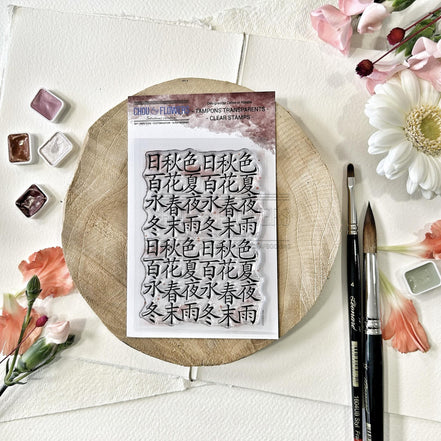 CHOU & FLOWERS
TAMPONS TRANSPARENTS
- CLEAR STAMPS -
日秋色日秋色
百花夏百花夏
水春夜水春夜
冬末雨冬末雨
日秋色日秋色
百花夏百花夏
水春夜水春夜
冬末雨冬末雨